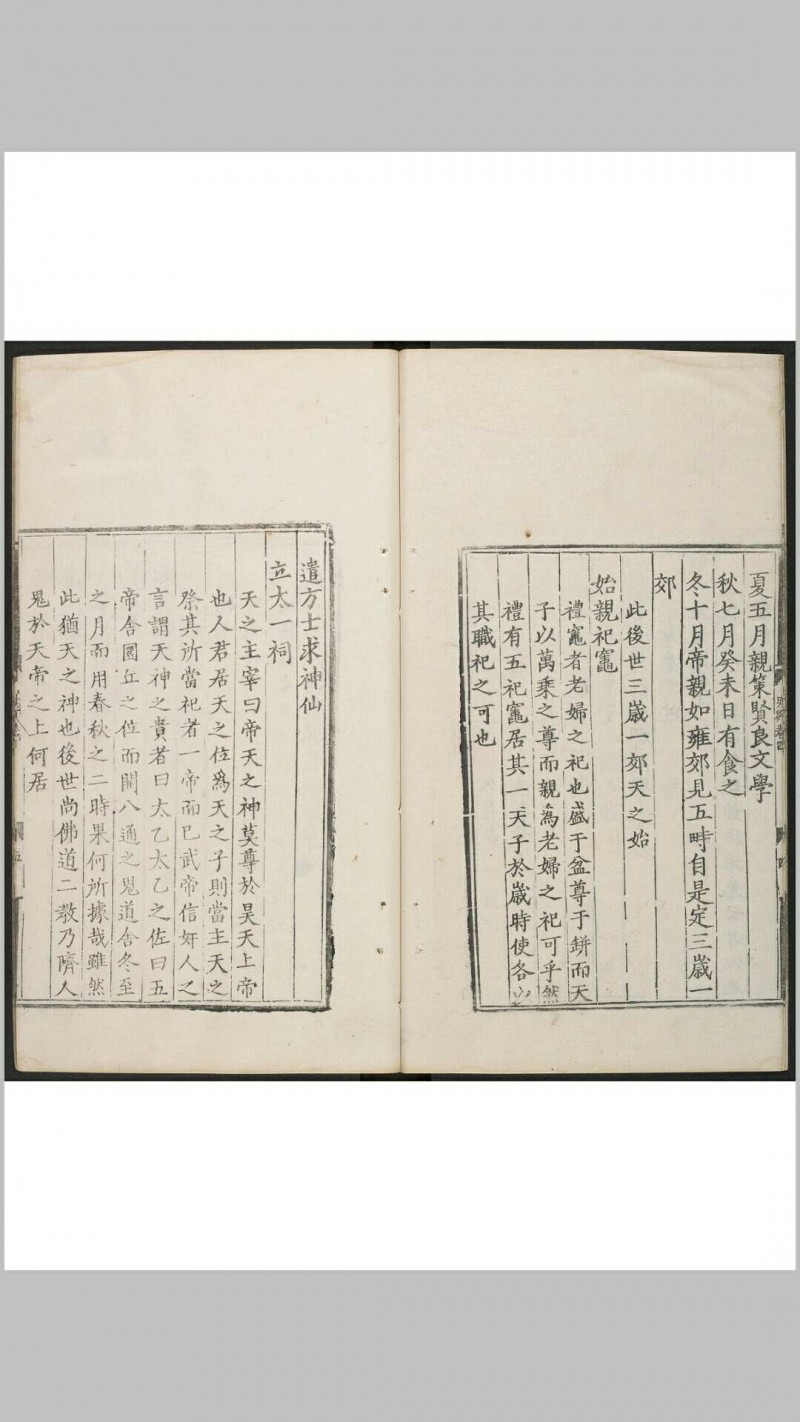 夏五月親策賢良文學
秋七月癸未日有食之
冬十月帝親如雍郊見五畤自是定三歲一
郊
此後世三歲一郊天之始
始親祀竈
禮竈者老婦之祀也盛于盆尊于缾而天
子以萬乘之尊而親為老婦之祀可乎然
禮有五祀竈居其一天子於歲時使各以
其職祀之可也
遣方士求神仙
立太一祠
天之主宰曰帝天之神莫尊於昊天上帝
也人君居天之位為天之子則當主天之
祭其所當祀者一帝而已武帝信奸人之
言謂天神之貴者曰太乙太乙之佐曰五
帝舍圜丘之位而開八通之鬼道舍冬至
之月而用春秋之二時果何所據哉雖然
此猶天之神也後世尚佛道二教乃隮人
鬼於天帝之上何居